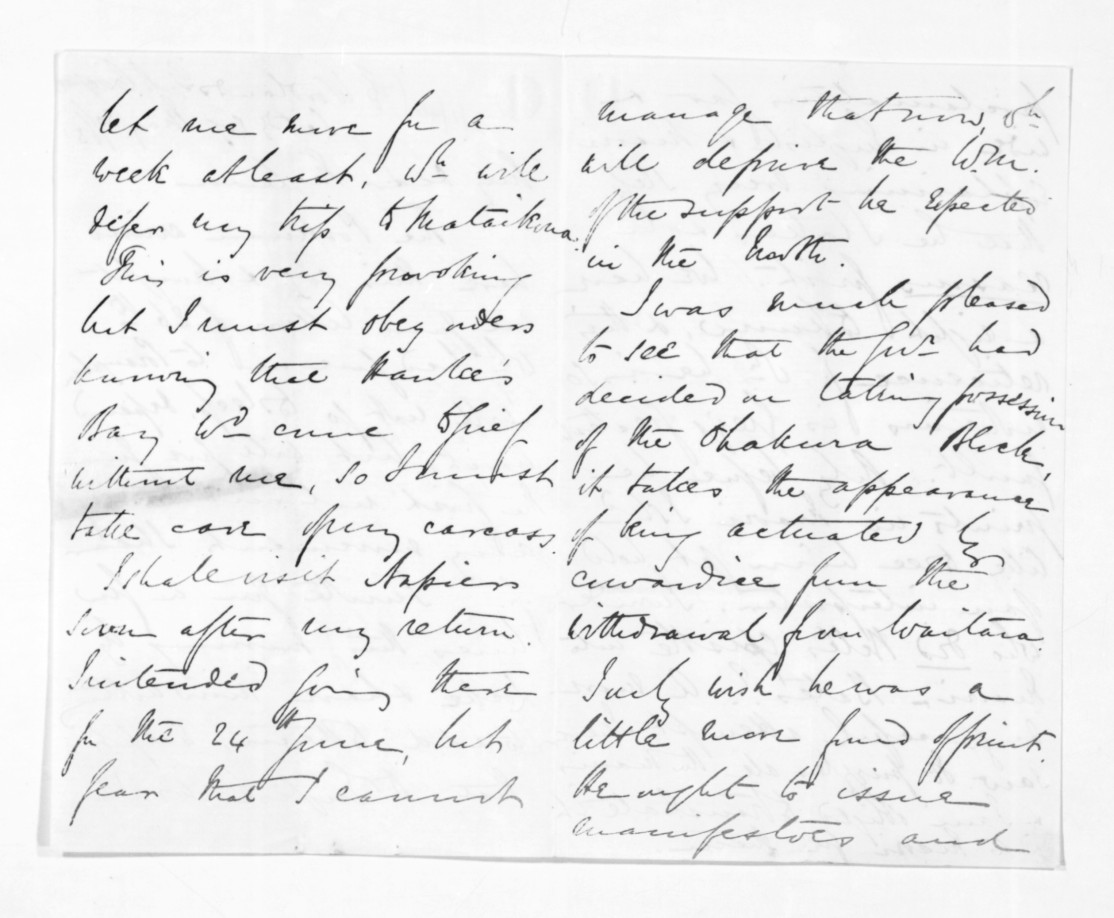 let me move for a
week at least, wh will
defer my trip to Mataikona.
This is very provoking
but I must obey orders
knowing that Hawke's
Bay wd come to grief
without me, so I must
take care of my carcass.
I shall visit Napier
soon after my return.
I intended going there
for the 24th June, but
fear that I cannot
manage that now, wh
will deprive the Wm.
of the support he expected
in the North.
I was much pleased
to see that the Govr had
decided on taking possession
of the Oakura Block,
it takes the appearance
of being actuated by
cowardice from the
withdrawal from Waitara.
I only wish he was a
little more fond of print.
He ought to issue
manifestoes and